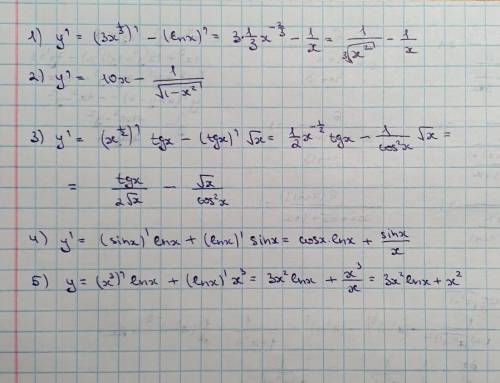 1) y' = (3x^(1/3))' − (lnx)' = 3·1/3 x^(-2/3) − 1/x = 1/∛x² − 1/x
2) y' = 10x − 1/√(1−x²)
3) y' = (x^(1/2))' tgx − (tgx)' √x = 1/2 x^(-1/2) tgx − 1/cos²x √x =
= tgx/2√x − √x/cos²x
4) y' = (sinx)' lnx + (lnx)' sinx = cosx·lnx + sinx/x
5) y = (x³)' lnx + (lnx)' x³ = 3x² lnx + x³/x = 3x² lnx + x²